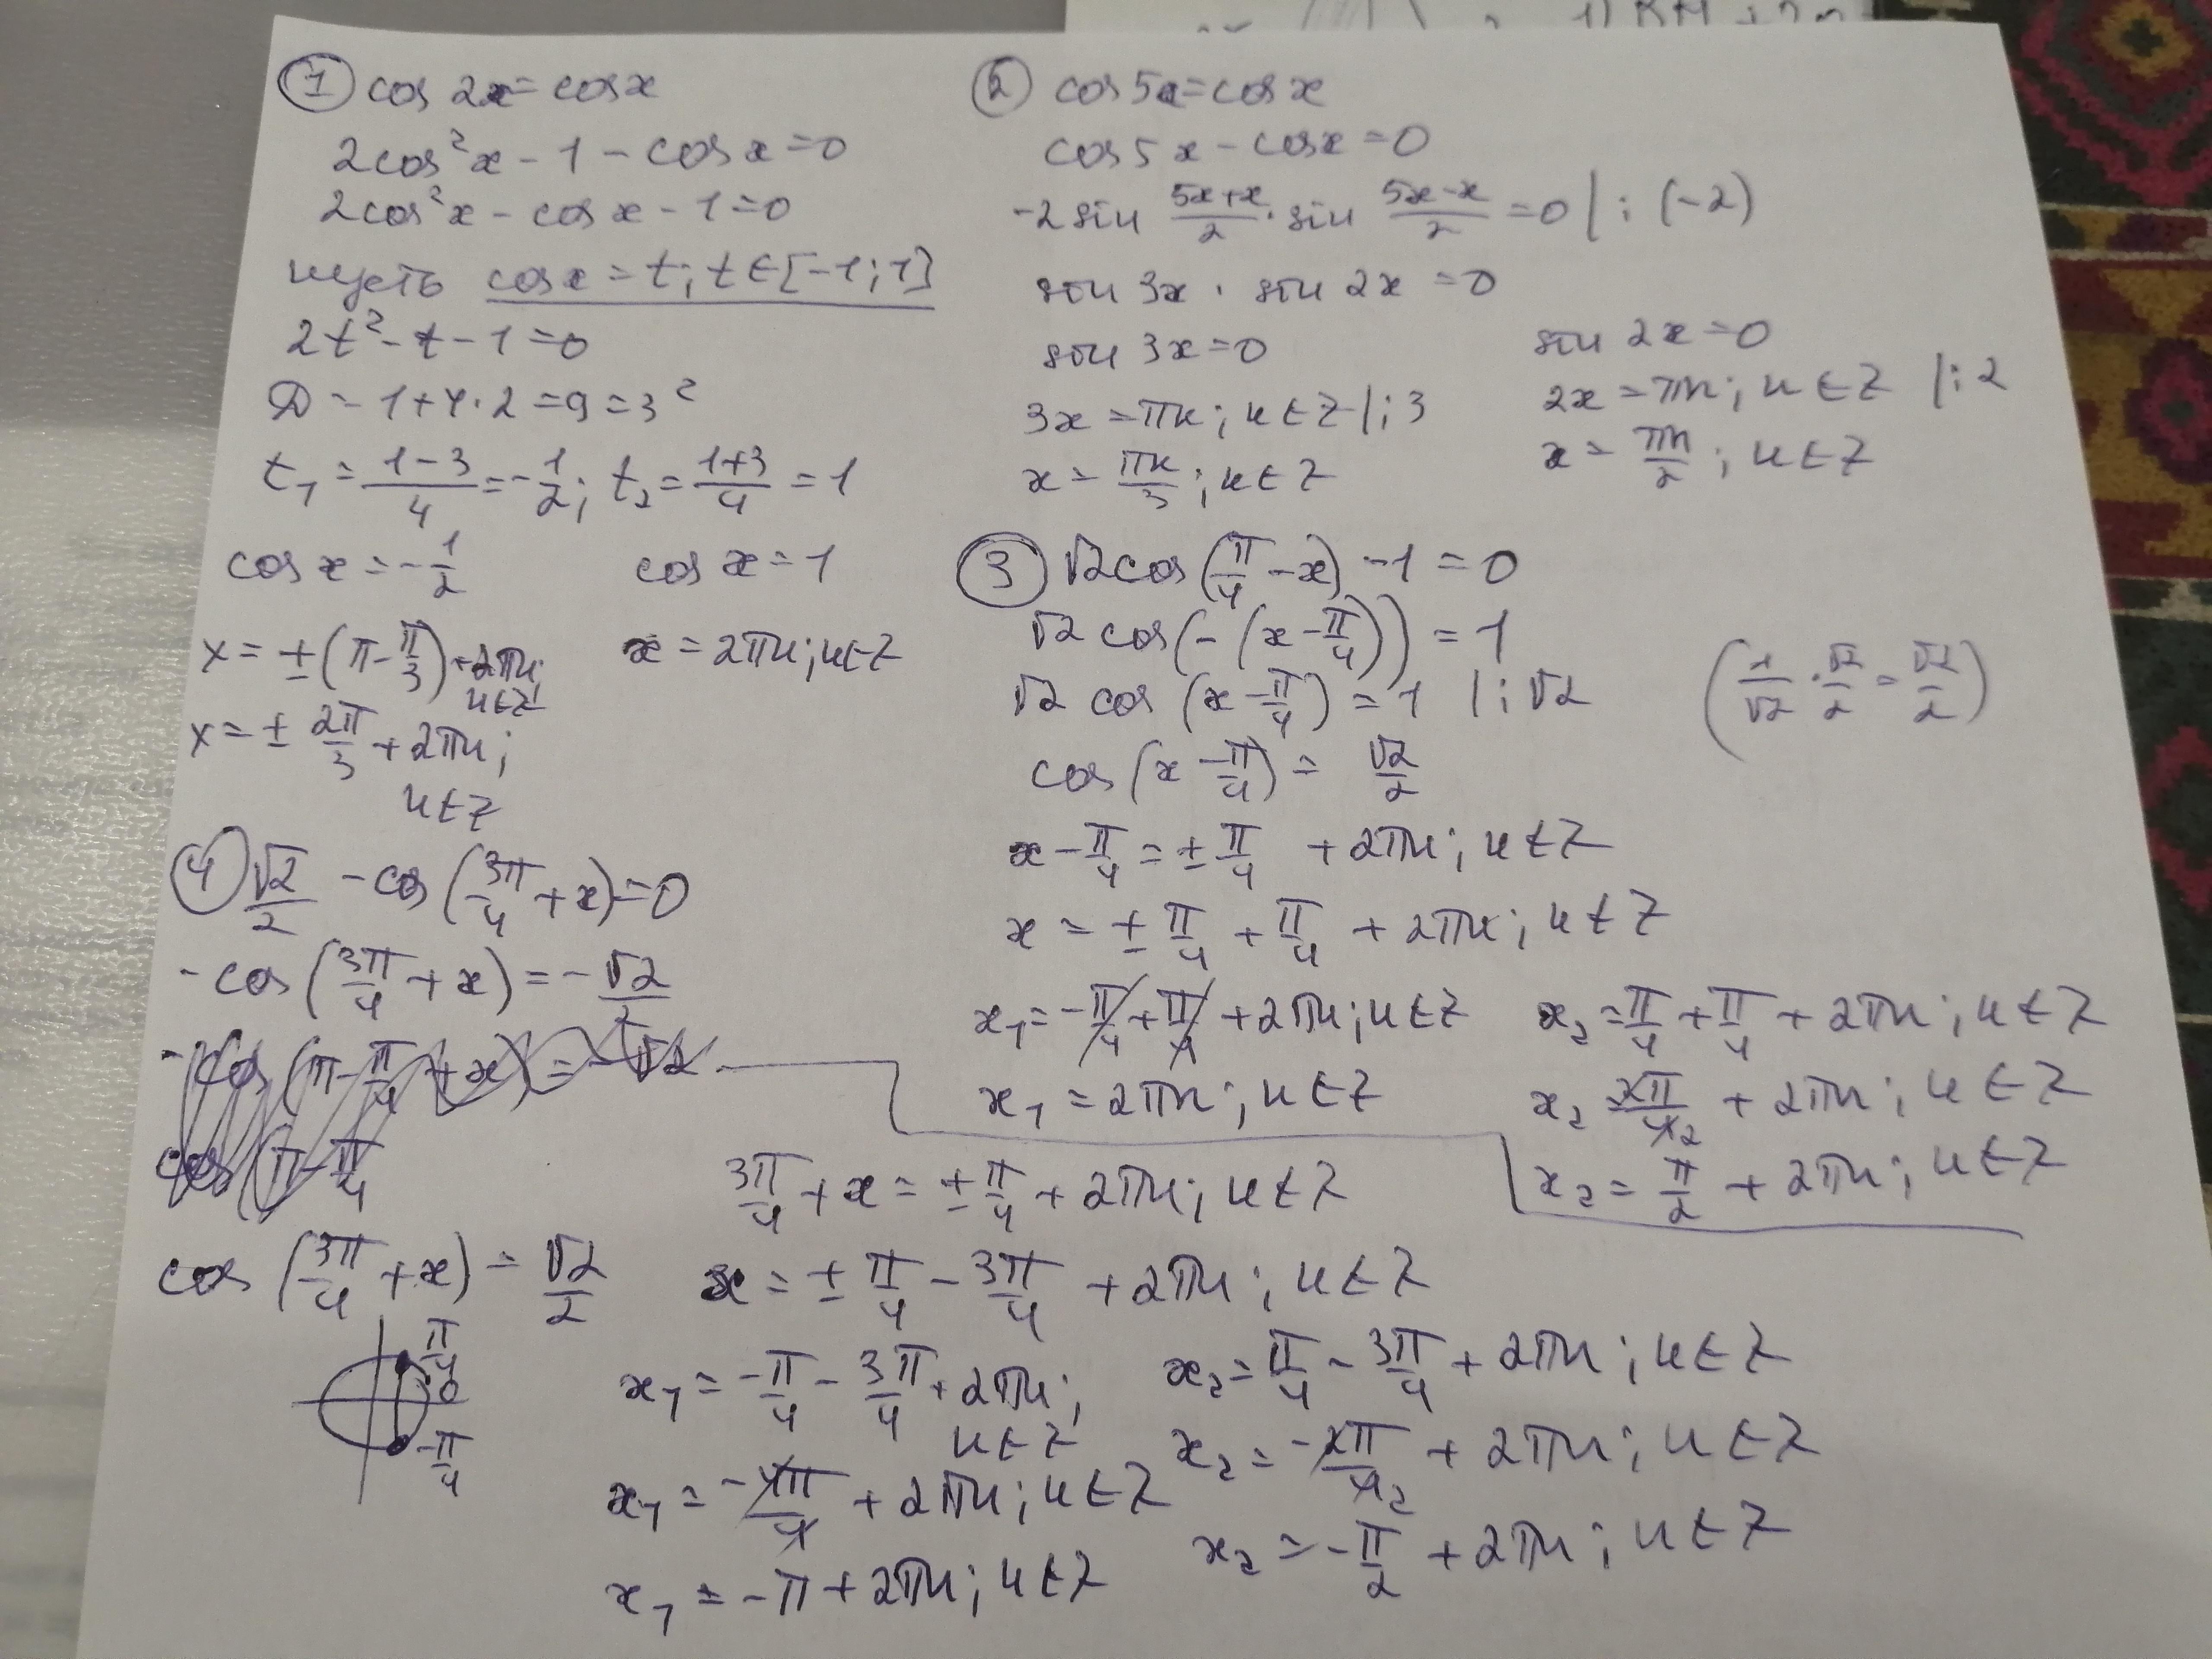 ① cos 2x = cos x
2cos²x - 1 - cos x = 0
2cos²x - cos x - 1 = 0
пусть cos x = t; t ∈ [-1; 1]
2t² - t - 1 = 0
D = 1 + 4·2 = 9 = 3²
t₁ = (1-3)/4 = -1/2; t₂ = (1+3)/4 = 1
cos x = -1/2    cos x = 1
x = ±(π - π/3) + 2πn; n ∈ Z    x = 2πn; n ∈ Z
x = ± 2π/3 + 2πn;
n ∈ Z
② cos 5x = cos x
cos 5x - cos x = 0
-2 sin (5x+x)/2 · sin (5x-x)/2 = 0 | : (-2)
sin 3x · sin 2x = 0
sin 3x = 0    sin 2x = 0
3x = πn; n ∈ Z | : 3    2x = πn; n ∈ Z | : 2
x = πn/3; n ∈ Z    x = πn/2; n ∈ Z
③ √2 cos(π/4 - x) - 1 = 0
√2 cos(-(x - π/4)) = 1
√2 cos(x - π/4) = 1 | : √2    (1/√2 · √2/2 = √2/2)
cos(x - π/4) = √2/2
x - π/4 = ± π/4 + 2πn; n ∈ Z
x = ± π/4 + π/4 + 2πn; n ∈ Z
x₁ = -π/4 + π/4 + 2πn; n ∈ Z    x₂ = π/4 + π/4 + 2πn; n ∈ Z
x₁ = 2πn; n ∈ Z    x₂ = 2π/4 2 + 2πn; n ∈ Z
x₂ = π/2 + 2πn; n ∈ Z
④ √2/2 - cos(3π/4 + x) = 0
-cos(3π/4 + x) = -√2/2
-cos(π - π/4 + x) = -√2
cos(π - π/4
cos(3π/4 + x) = √2/2
π/4
0
-π/4
3π/4 + x = ± π/4 + 2πn; n ∈ Z
x = ± π/4 - 3π/4 + 2πn; n ∈ Z
x₁ = -π/4 - 3π/4 + 2πn; n ∈ Z    x₂ = π/4 - 3π/4 + 2πn; n ∈ Z
x₁ = -4π/4 + 2πn; n ∈ Z    x₂ = -2π/4 2 + 2πn; n ∈ Z
x₁ = -π + 2πn; n ∈ Z    x₂ = -π/2 + 2πn; n ∈ Z